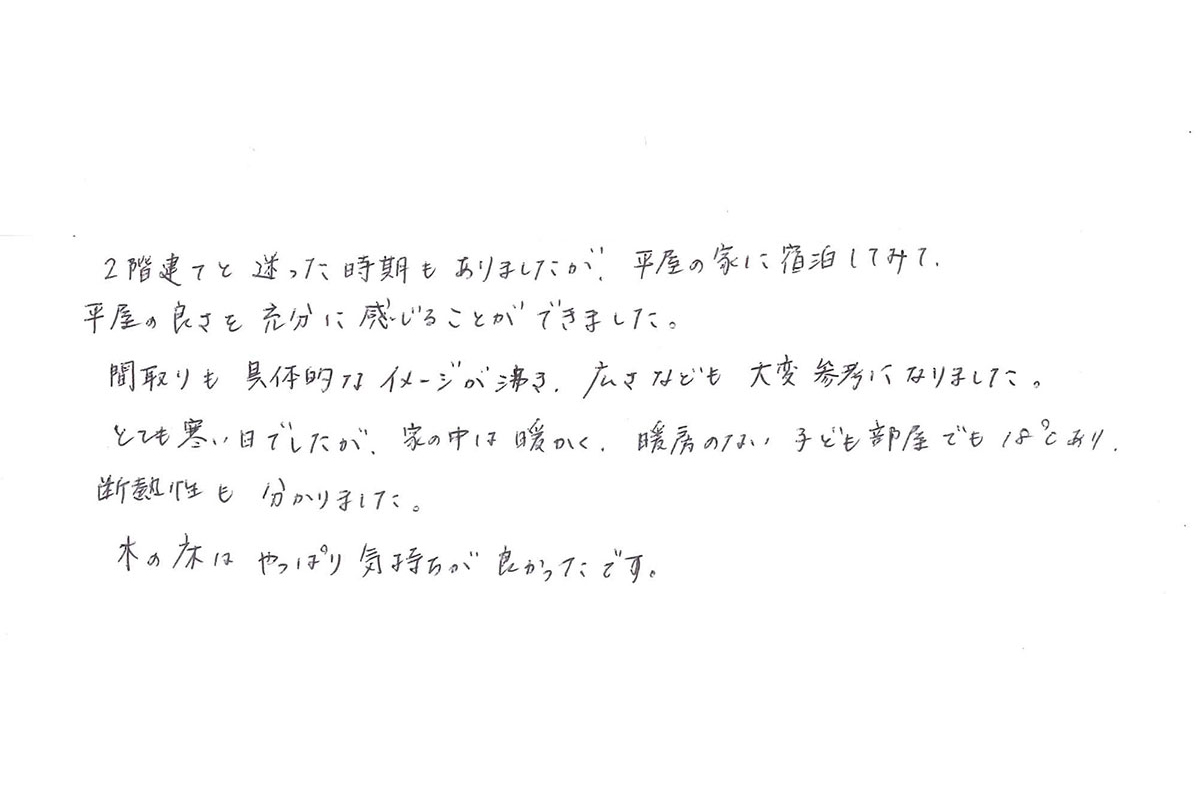 2階建てと迷った時期もありましたが、平屋の家に宿泊してみて、
平屋の良さを充分に感じることができました。
間取りも具体的なイメージが沸き、広さなども大変参考になりました。
とても寒い日でしたが、家の中は暖かく、暖房のない子ども部屋でも18℃あり、
断熱性も分かりました。
木の床はやっぱり気持ちが良かったです。